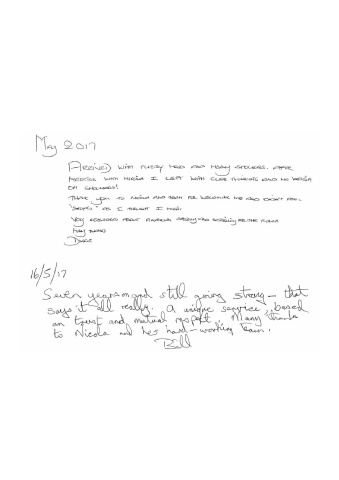 May 2017
Arrived with fuzzy head and heavy shoulders. After
meeting with Nicola I left with clear thinking and no weight
on shoulders!
Thank you to Nicola and team for welcoming me and didn't feel
"stupid" as I thought I might.
Very reassured about financial and for the future
Many thanks
16/5/17
Seven years on and still going strong - that
says it all really. A unique service, based
on trust and mutual respect. Many thanks
to Nicola and her hard-working team.
Bill